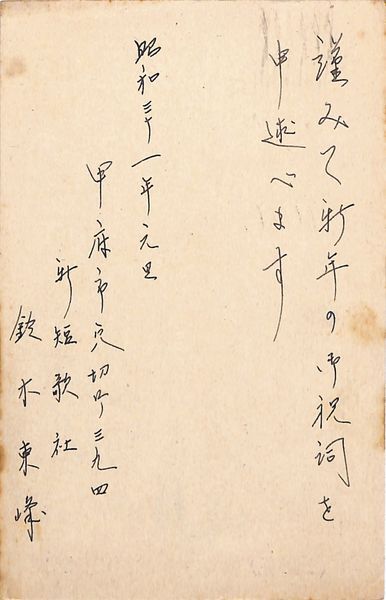 謹みて新年の御祝詞を
申述べます
昭和三十一年元旦
甲府市兄切町三九四
新短歌社
鈴木東峰